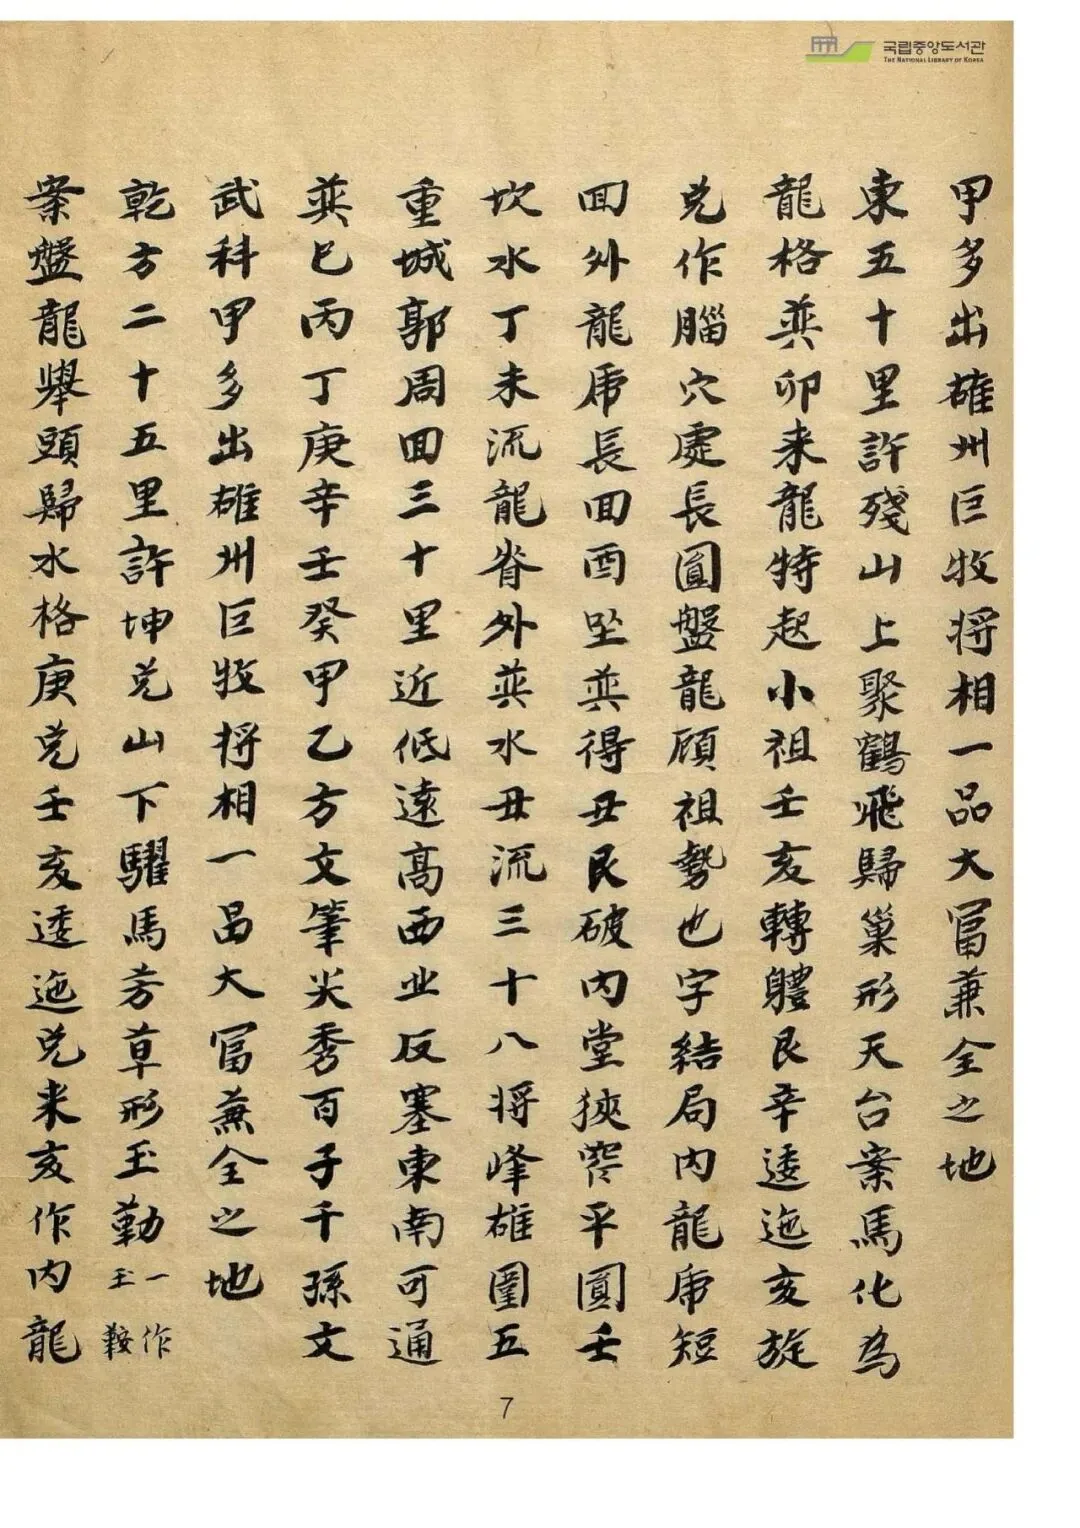 국립중앙도서관
THE NATIONAL LIBRARY OF KOREA
甲多出雄州巨牧將相一品大富兼全之地
東五十里許殘山上聚鶴飛歸巢形天台案馬化為
龍格巽卯来龍特起小祖壬亥轉體艮辛逶迤亥旋
兌作腦穴處長圓盤龍顧祖勢也字結局內龍虎短
回外龍虎長回酉坐巽得丑艮破內堂狹窄平圓壬
坎水丁未流龍脊外巽水丑流三十八將峰雄圍五
重城郭周回三十里近低遠高西北反塞東南可通
巽巳丙丁庚辛壬癸甲乙方文筆尖秀百子千孫文
武科甲多出雄州巨牧將相一品大富兼全之地
乾方二十五里許坤兌山下驪馬芳草形玉勒一作玉鞍
案盤龍舉頭歸水格庚兌壬亥逶迤兌来亥作內龍
7